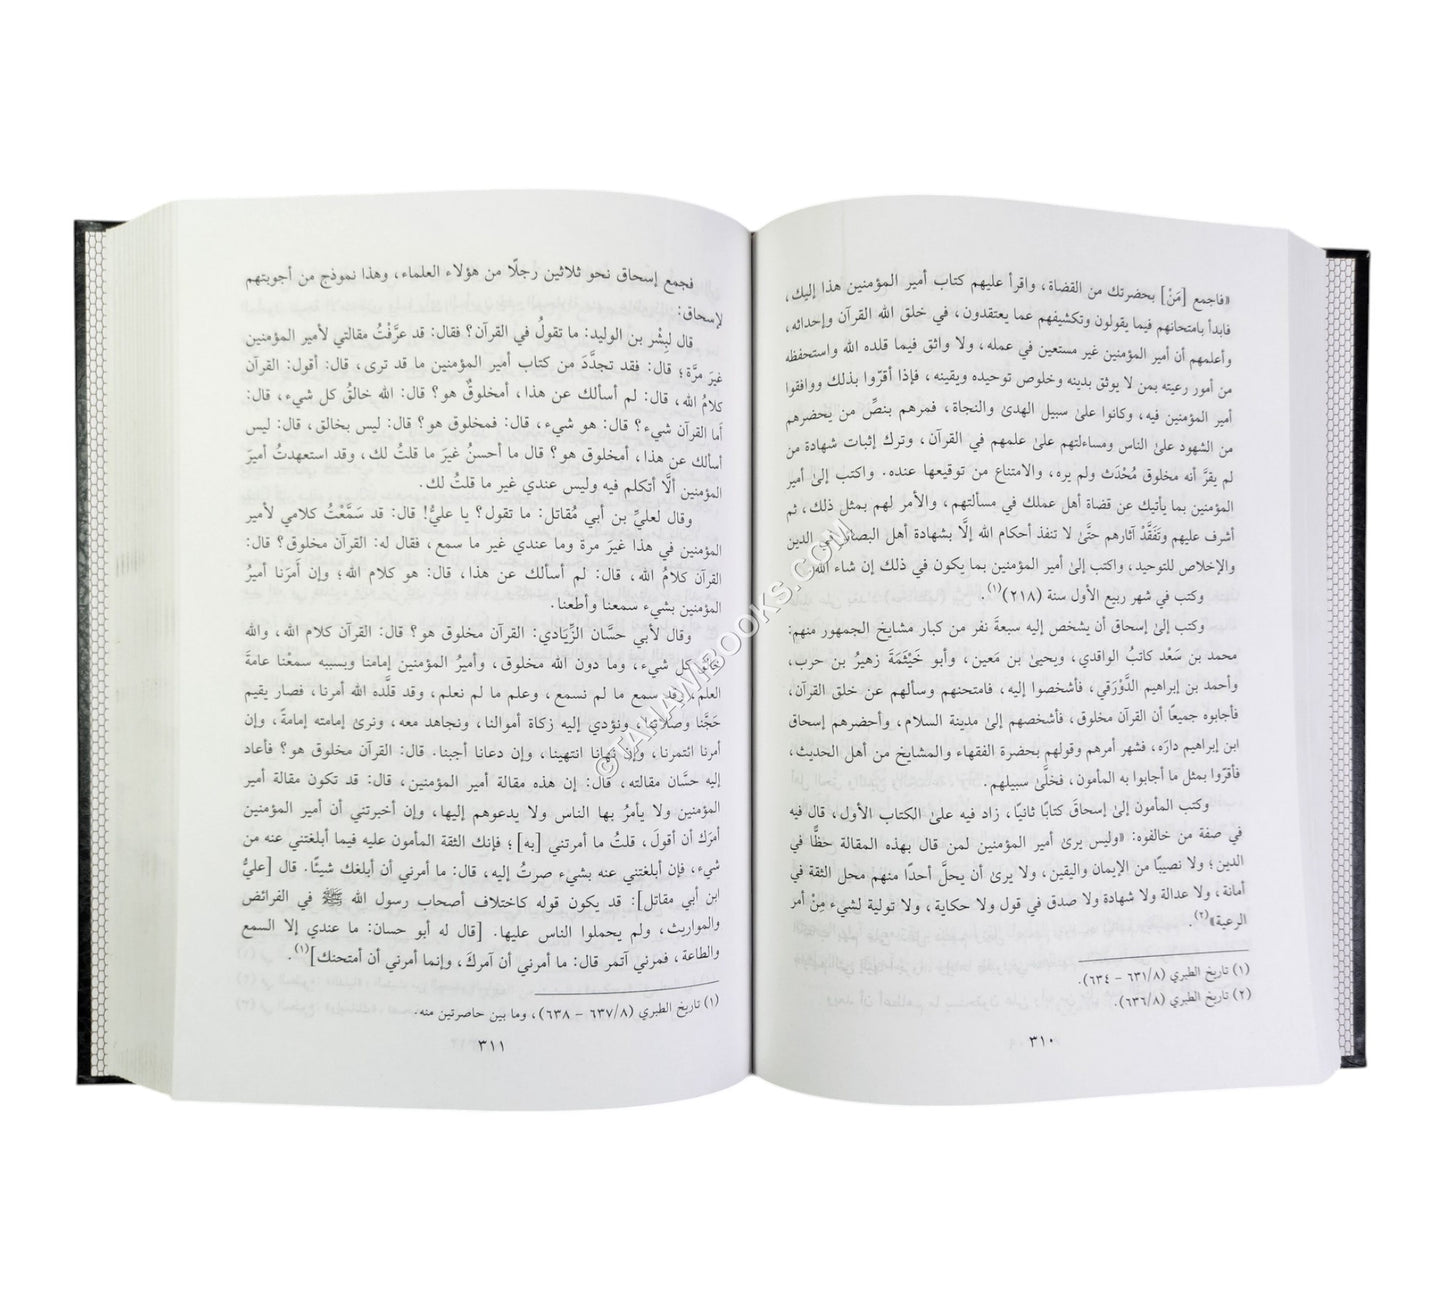 «فاجمع [مَنْ] بحضرتك من القضاة، واقرأ عليهم كتاب أمير المؤمنين هذا إليك،
فابدأ بامتحانهم فيما يقولون وتكشيفهم عما يعتقدون، في خلق الله القرآن وإحداثه،
وأعلمهم أن أمير المؤمنين غير مستعين في عمله، ولا واثق فيما قلده الله واستحفظه
من أمور رعيته بمن لا يوثق بدينه وخلوص توحيده ويقينه، فإذا أقرّوا بذلك ووافقوا
أمير المؤمنين فيه، وكانوا علىٰ سبيل الهدىٰ والنجاة، فمرهم بنصِّ من يحضرهم
من الشهود علىٰ الناس ومساءلتهم علىٰ علمهم في القرآن، وترك إثبات شهادة من
لم يقرَّ أنه مخلوق مُحْدَث ولم يره، والامتناع من توقيعها عنده. واكتب إلىٰ أمير
المؤمنين بما يأتيك عن قضاة أهل عملك في مسألتهم، والأمر لهم بمثل ذلك، ثم
أشرف عليهم وتَفَقَّدْ آثارهم حتَّىٰ لا تنفذ أحكام الله إلَّا بشهادة أهل البصائر في الدين
والإخلاص للتوحيد، واكتب إلىٰ أمير المؤمنين بما يكون في ذلك إن شاء الله»
وكتب في شهر ربيع الأول سنة (٢١٨)(١).
وكتب إلىٰ إسحاق أن يشخص إليه سبعةَ نفر من كبار مشايخ الجمهور منهم:
محمد بن سَعْد كاتبُ الواقدي، ويحيىٰ بن مَعين، وأبو خَيْثَمَةَ زهيرُ بن حرب،
وأحمد بن إبراهيم الدَّوْرَقي، فأشخصوا إليه، فامتحنهم وسألهم عن خلق القرآن،
فأجابوه جميعًا أن القرآن مخلوق، فأشخصهم إلىٰ مدينة السلام، وأحضرهم إسحاق
ابن إبراهيم دارَه، فشهر أمرهم وقولهم بحضرة الفقهاء والمشايخ من أهل الحديث،
فأقرّوا بمثل ما أجابوا به المأمون، فخلَّىٰ سبيلهم.
وكتب المأمون إلىٰ إسحاقَ كتابًا ثانيًا، زاد فيه علىٰ الكتاب الأول، قال فيه
في صفة من خالفوه: «وليس يرىٰ أمير المؤمنين لمن قال بهذه المقالة حظًّا في
الدين؛ ولا نصيبًا من الإيمان واليقين، ولا يرىٰ أن يحلَّ أحدًا منهم محل الثقة في
أمانة، ولا عدالة ولا شهادة ولا صدق في قول ولا حكاية، ولا تولية لشيء مِنْ أمر
الرعية»(٢).
(١) تاريخ الطبري (٦٣١/٨ – ٦٣٤).
(٢) تاريخ الطبري (٦٣٦/٨).
٣١٠
فجمع إسحاق نحو ثلاثين رجلًا من هؤلاء العلماء، وهذا نموذج من أجوبتهم
لإسحاق:
قال لبِشْر بن الوليد: ما تقولُ في القرآن؟ فقال: قد عرَّفْتُ مقالتي لأمير المؤمنين
غيرَ مرَّة؛ قال: فقد تجدَّدَ من كتاب أمير المؤمنين ما قد ترى، قال: أقول: القرآن
كلامُ الله، قال: لم أسألك عن هذا، أمخلوقٌ هو؟ قال: الله خالقُ كل شيء، قال:
أَما القرآن شيء؟ قال: هو شيء، قال: فمخلوق هو؟ قال: ليس بخالق، قال: ليس
أسألك عن هذا، أمخلوق هو؟ قال ما أحسنُ غيرَ ما قلتُ لك، وقد استعهدتُ أميرَ
المؤمنين ألَّا أتكلم فيه وليس عندي غير ما قلتُ لك.
وقال لعليِّ بن أبي مُقاتل: ما تقول؟ يا عليُّ! قال: قد سَمَّعْتُ كلامي لأمير
المؤمنين في هذا غيرَ مرة وما عندي غير ما سمع، فقال له: القرآن مخلوق؟ قال:
القرآن كلامُ الله، قال: لم أسألك عن هذا، قال: هو كلام الله؛ وإن أمَرَنا أميرُ
المؤمنين بشيء سمعنا وأطعنا.
وقال لأبي حسَّان الزِّيَادي: القرآن مخلوق هو؟ قال: القرآن كلام الله، والله
خالق كل شيء، وما دون الله مخلوق، وأميرُ المؤمنين إمامنا وبسببه سمعْنا عامةَ
العلم، وقد سمع ما لم نسمع، وعلم ما لم نعلم، وقد قلَّده الله أمرنا، فصار يقيم
حَجَّنا وصلاتنا، ونؤدي إليه زكاة أموالنا، ونجاهد معه، ونرىٰ إمامته إمامةً، وإن
أمرنا ائتمرنا، وإن نهانا انتهينا، وإن دعانا أجبنا. قال: القرآن مخلوق هو؟ فأعاد
إليه حسَّان مقالته، قال: إن هذه مقالة أمير المؤمنين، قال: قد تكون مقالة أمير
المؤمنين ولا يأمرُ بها الناس ولا يدعوهم إليها، وإن أخبرتني أن أمير المؤمنين
أمرَك أن أقولَ، قلتُ ما أمرتني [به]؛ فإنك الثقة المأمون عليه فيما أبلغتني عنه من
شيء، فإن أبلغتني عنه بشيء صرتُ إليه، قال: ما أمرني أن أبلغك شيئًا. قال [عليُّ
ابن أبي مقاتل]: قد يكون قوله كاختلاف أصحاب رسول الله ﷺ في الفرائض
والمواريث، ولم يحملوا الناس عليها. [قال له أبو حسان: ما عندي إلا السمع
والطاعة، فمرني آتمر قال: ما أمرني أن آمركَ، وإنما أمرني أن أمتحنك](١).
(١) تاريخ الطبري (٦٣٧/٨ – ٦٣٨)، وما بين حاصرتين منه.
٣١١
©TAHAWIBOOKS.COM